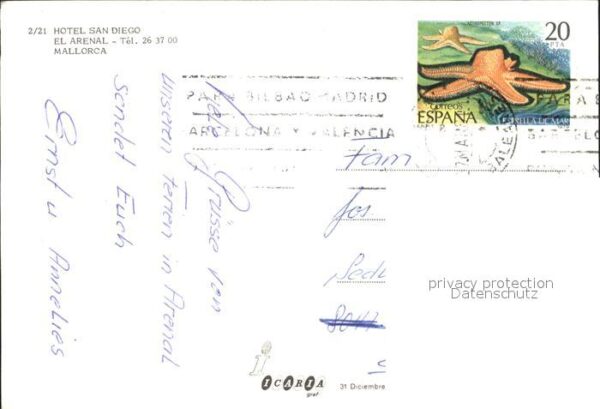 2/21 HOTEL SAN DIEGO
EL ARENAL - Tél. 26 37 00
MALLORCA
20
PTA
Correos
ESPAÑA
ESTRELLA DE MAR
BILBAO MADRID
BARCELONA Y VALENCIA
PARA
Grüsse von
unseren Ferien in Arenal
sendet Euch
Ernst u Annelies
Fam
Jos
privacy protection
Datenschutz
ICARIA
graf
31 Diciembre